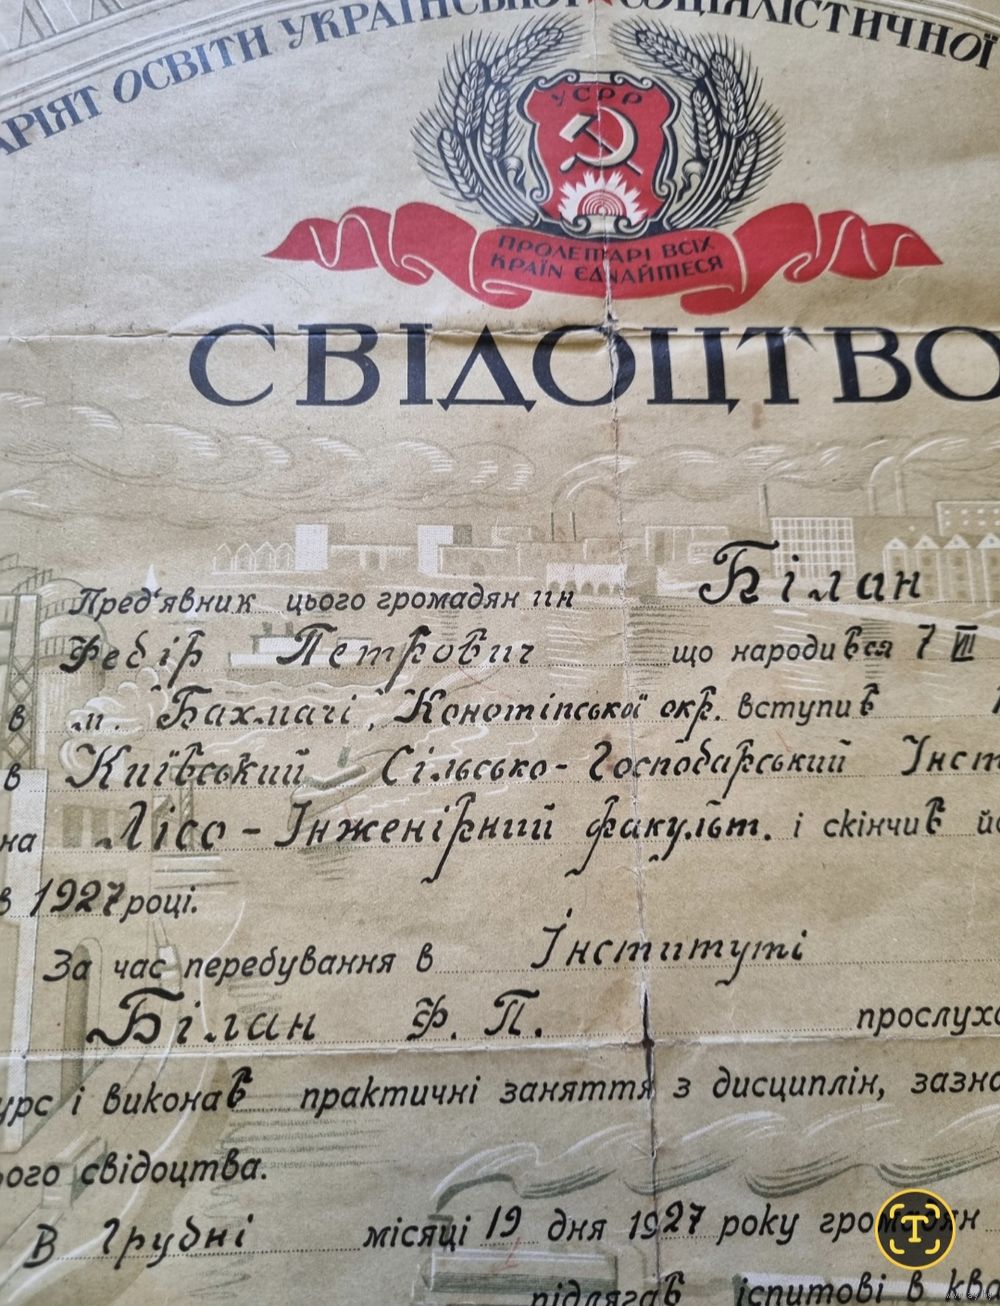 АРІЯТ ОСВІТИ УКРАЇНСЬКОЇ СОЦІЯЛІСТИЧНОЇ
УСРР
ПРОЛЕТАРІ ВСІХ
КРАЇН ЄДНАЙТЕСЯ
СВІДОЦТВО
Пред'явник цього громадянин Білан
Федір Петрович що народився 7 VIII
в м. Бахмачі, Конотіпської окр. вступив
в Київський Сільсько-Господарський Інст
на Лісо-Інженірний факульт. і скінчив йо
в 1927 році.
За час перебування в Інституті
Білан Ф. П. прослуха
урс і виконав практичні заняття з дисциплін, зазна
ього свідоцтва.
В Грудні місяці 19 дня 1927 року громадян
підлягав іспитові в ква